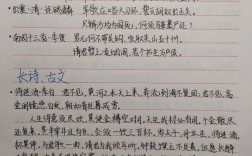 出塞·清·徐锡麟 军歌应唱大刀环,誓灭胡奴出玉关。
只解沙场为国死,何须马革裹尸还?
南园十三首·李贺 男儿何不带吴钩,收取关山五十州。
请君暂上凌烟阁,若个书生万户侯。
长诗、古文
将进酒·李白 君不见,黄河之水天上来,奔流到海不复回。君不见,高
堂明镜悲白发,朝如青丝暮成雪。
人生得意须尽欢,莫使金樽空对月。天生我材必有用,千金散尽
还复来。烹羊宰牛且为乐,会须一饮三百杯。岑夫子,丹丘生,将进酒,
杯莫停。与君歌一曲,请君为我倾耳听。钟鼓馔玉不足贵,但愿长醉